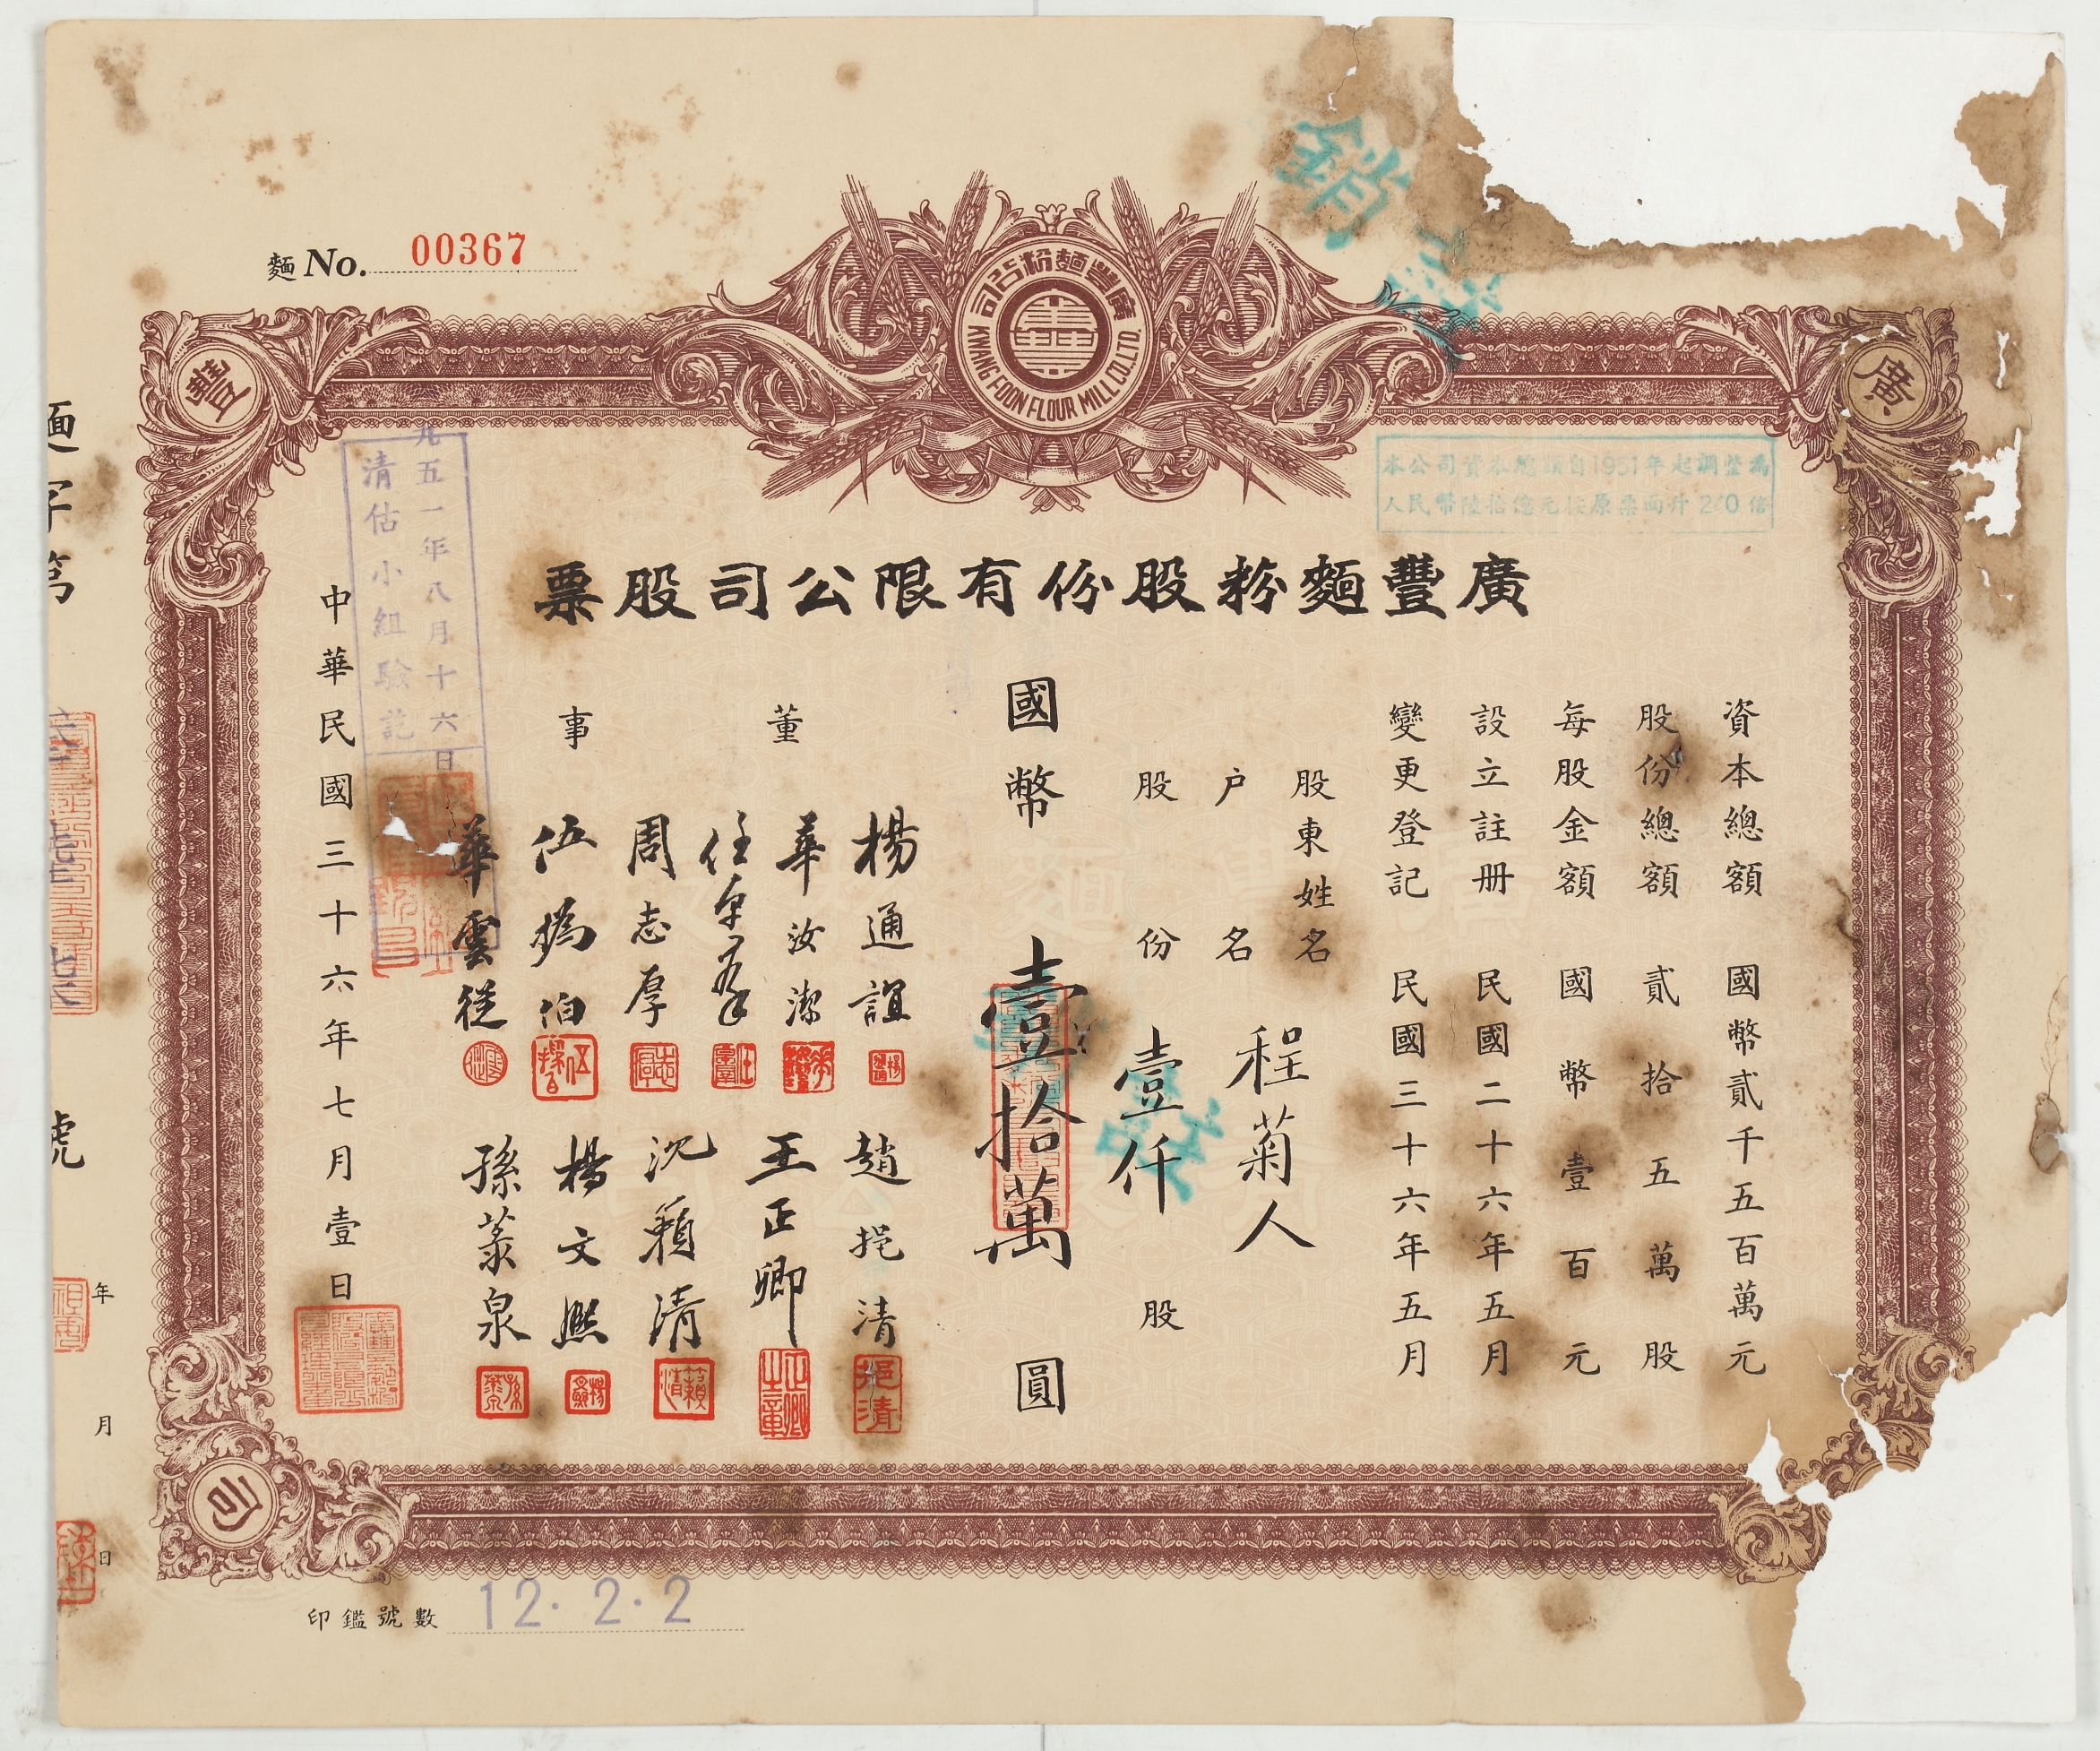 麵 No. 00367
廣豐麵粉公司
KWANG FOON FLOUR MILL CO.LTD.
廣
豐
司
本公司資本總額自1951年起調整為
人民幣陸拾億元按原票面升240倍
廣豐麵粉股份有限公司股票
資本總額 國幣貳千五百萬元
股份總額 貳拾五萬股
每股金額 國幣壹百元
設立註冊 民國二十六年五月
變更登記 民國三十六年五月
股東姓名 程菊人
户名
股份 壹仟 股
國幣 壹拾萬 圓
董事
楊通誼
華汝潔
周志厚
伍撝伯
華雲從
趙挹清
王正卿
沈籟清
楊文熙
孫蓁泉
中華民國三十六年七月壹日
九五一年八月十六日
清估小組驗訖
挹清
正卿之章
銷
註
麵字第
號
年
月
日
印鑑號數 12.2.2